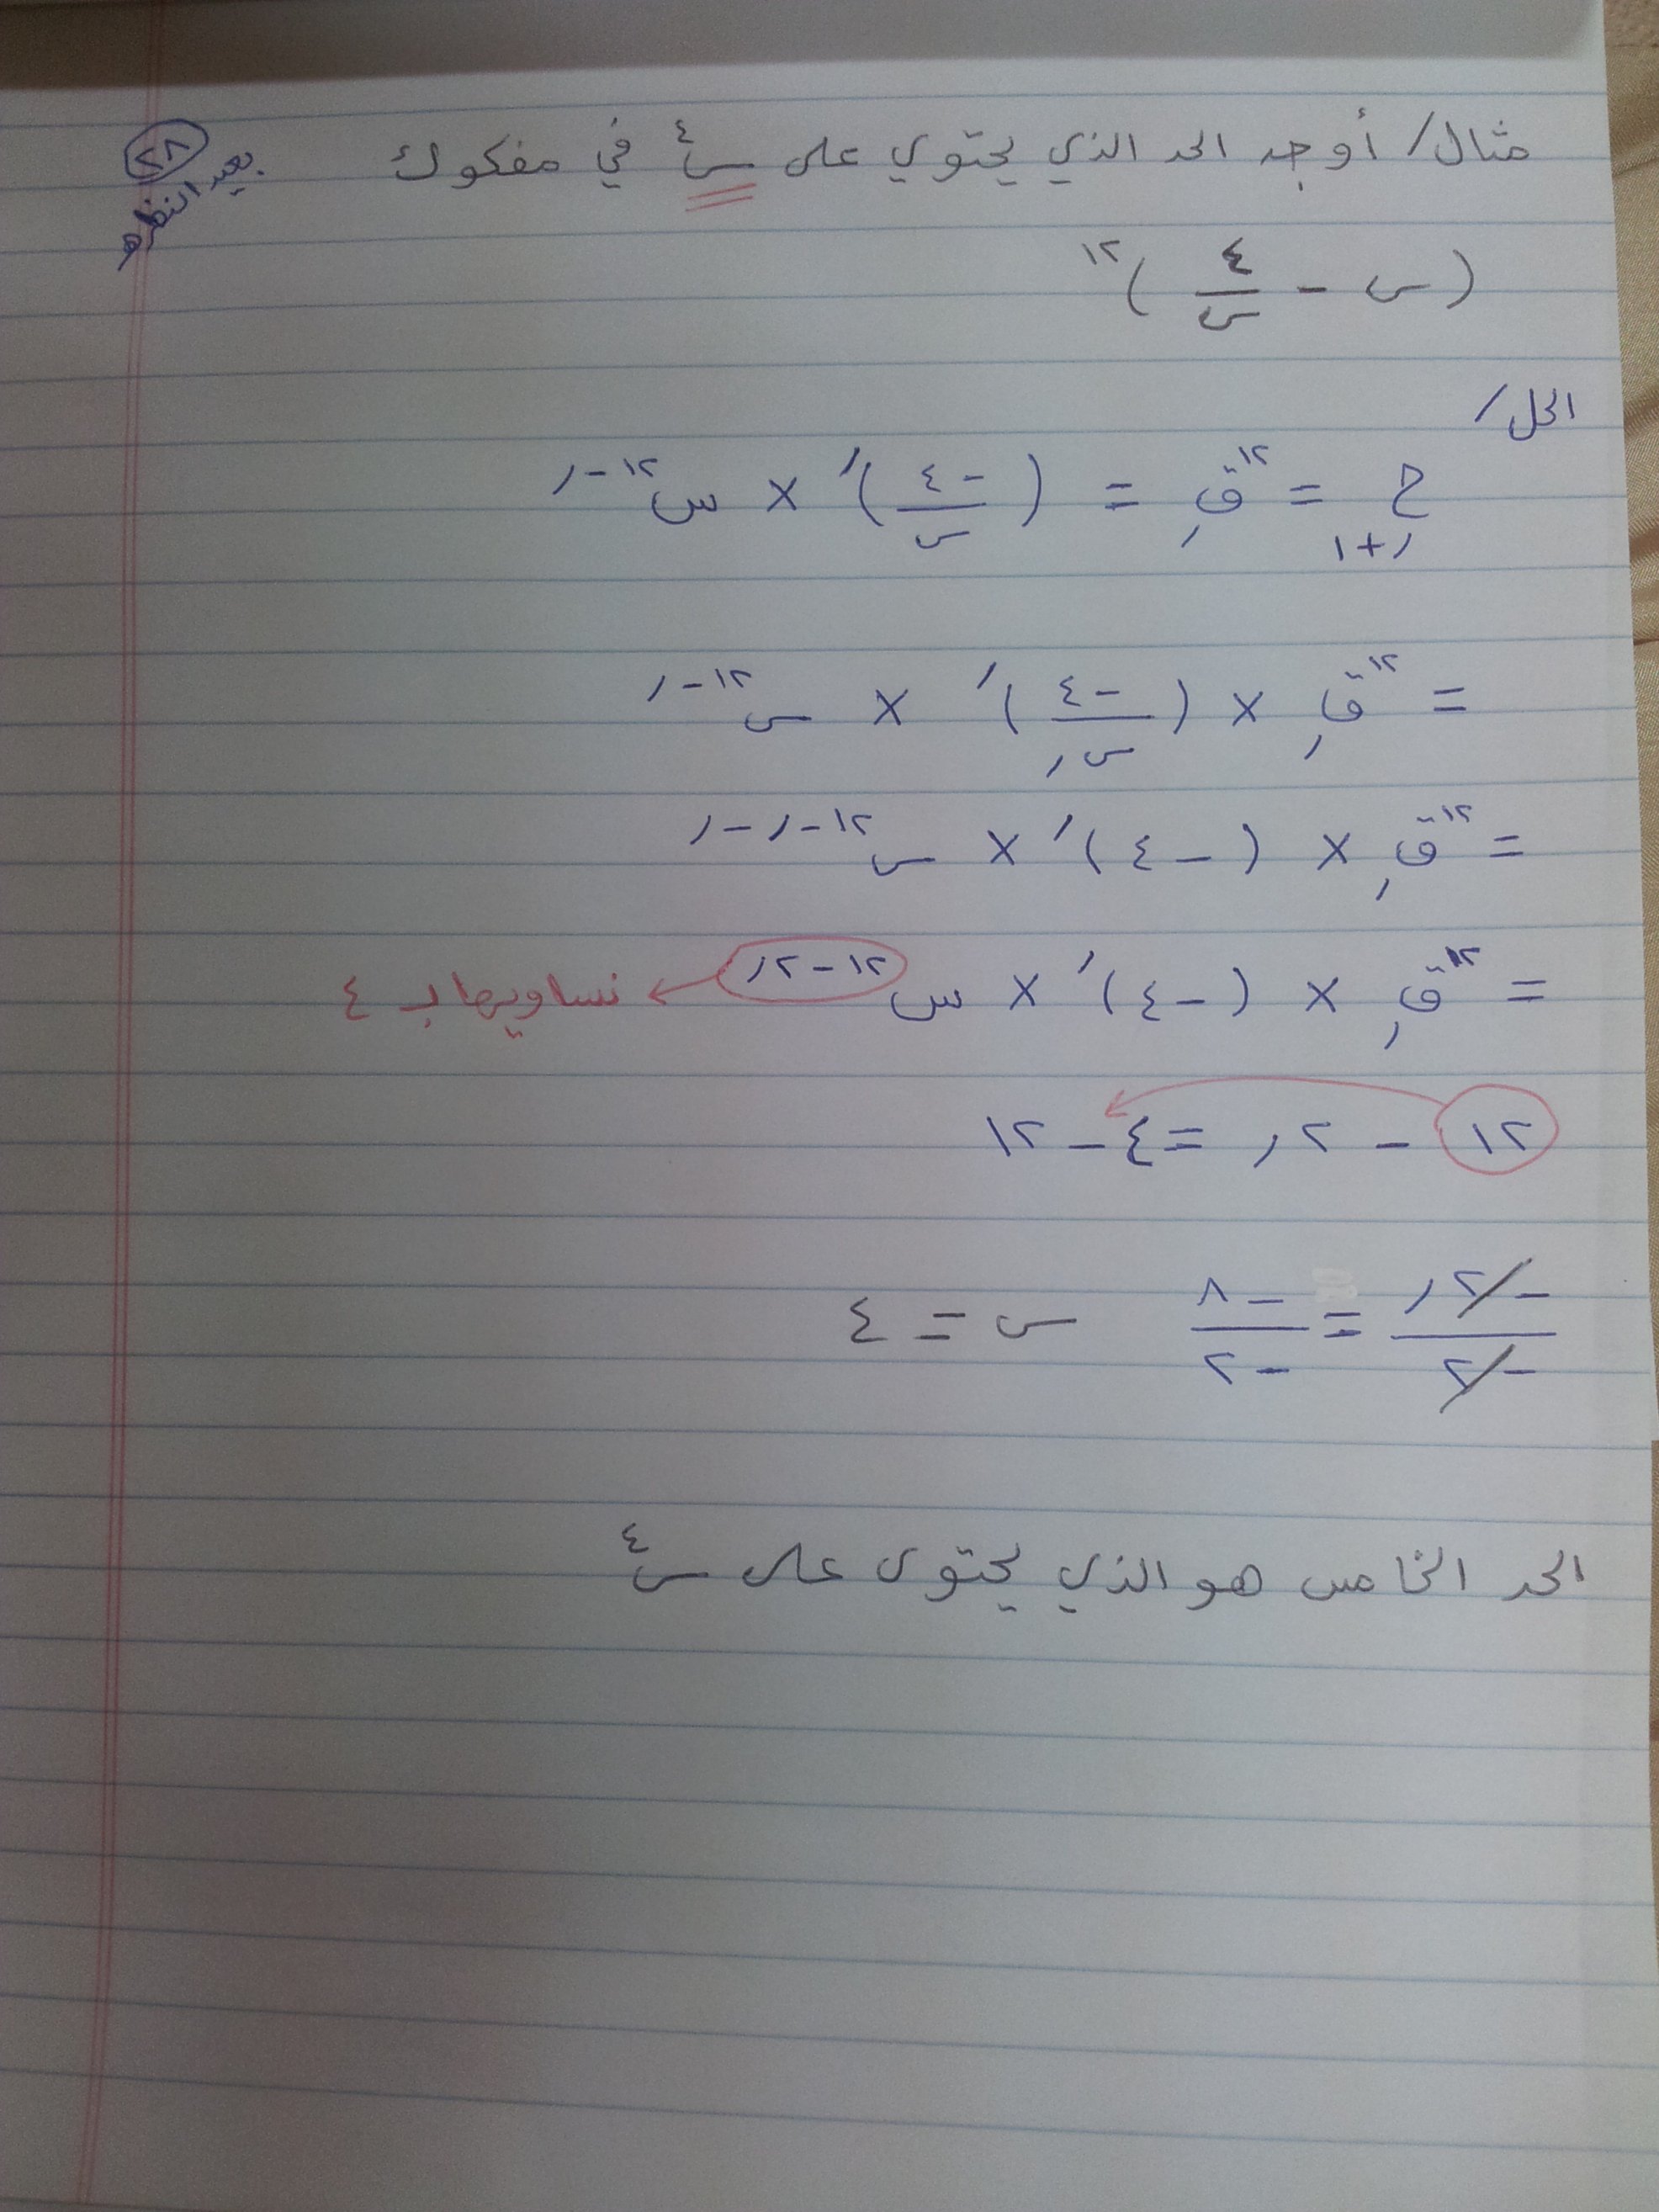 مثال/ أوجد الحد الذي يحتوي على س^٤ في مفكوك
٢٨
بعيد النظره
(س - ٤/س)^١٢
الحل/
ح ر+١ = ^١٢ق ر = (-٤/س)^ر × س^١٢-ر
= ^١٢ق ر × (-٤/س ر)^ر × س^١٢-ر
= ^١٢ق ر × (-٤)^ر × س^١٢-ر-ر
= ^١٢ق ر × (-٤)^ر × س^١٢-٢ر ← نساويها بـ ٤
١٢ - ٢ر = ٤ - ١٢
-٢ر/-٢ = -٨/-٢ س = ٤
الحد الخامس هو الذي يحتوى على س^٤